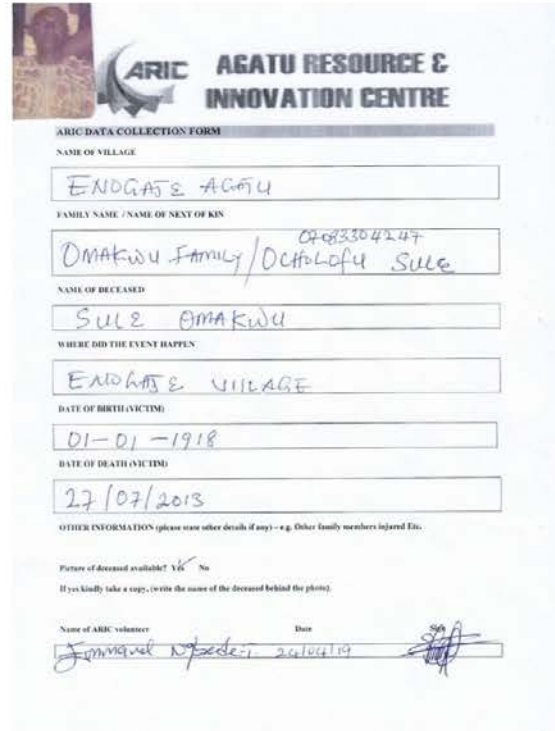 ARIC AGATU RESOURCE &
INNOVATION CENTRE
ARIC DATA COLLECTION FORM
NAME OF VILLAGE
ENOGAJE AGATU
FAMILY NAME / NAME OF NEXT OF KIN
07083304247
OMAKWU FAMILY/OCHOLOFU SULE
NAME OF DECEASED
SULE OMAKWU
WHERE DID THE EVENT HAPPEN
ENOGAJE VILLAGE
DATE OF BIRTH (VICTIM)
01-01-1918
DATE OF DEATH (VICTIM)
27/07/2013
OTHER INFORMATION (please state other details if any) – e.g. Other family members injured Etc.
Picture of deceased available? Yes No
If yes kindly take a copy, (write the name of the deceased behind the photo).
Name of ARIC volunteer Date Sign
24/04/19